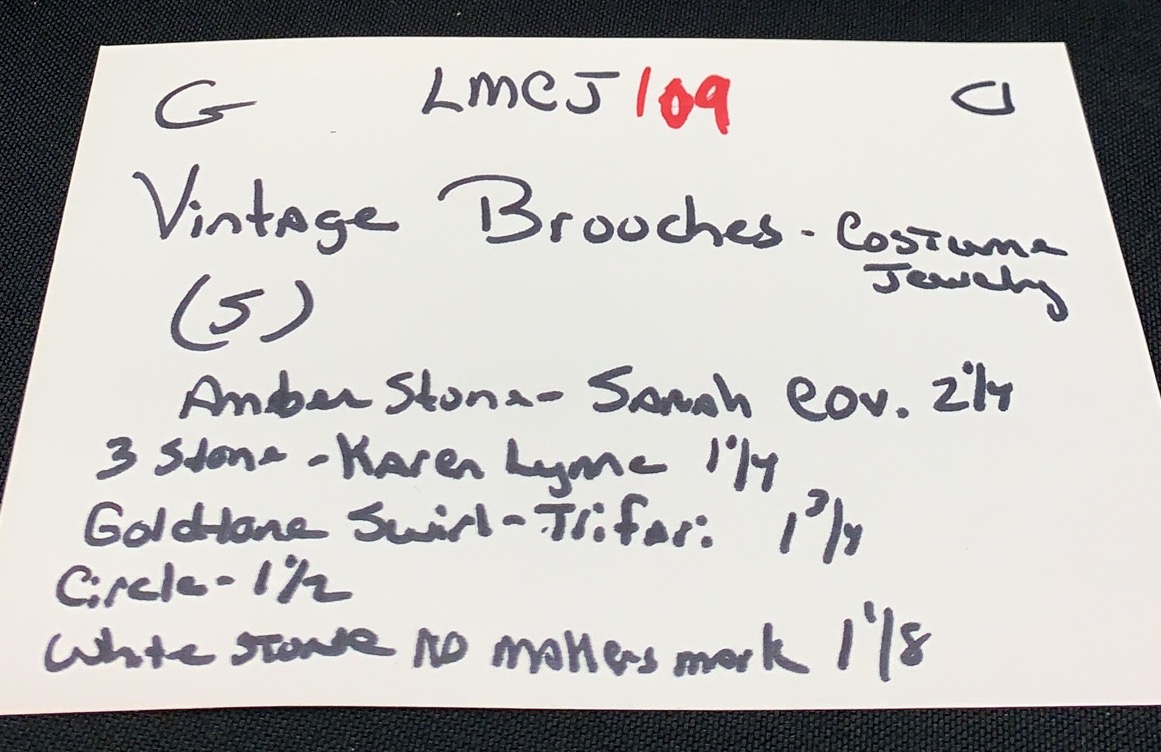 G LMCJ 109 CJ
Vintage Brooches - Costume
Jewelry
(5)
Amber Stone - Sarah Cov. 2 1/4
3 Stone - Karen Lynne 1 1/4
Goldtone Swirl - Trifari 1 3/4
Circle - 1 1/2
White Stone No makers mark 1 1/8